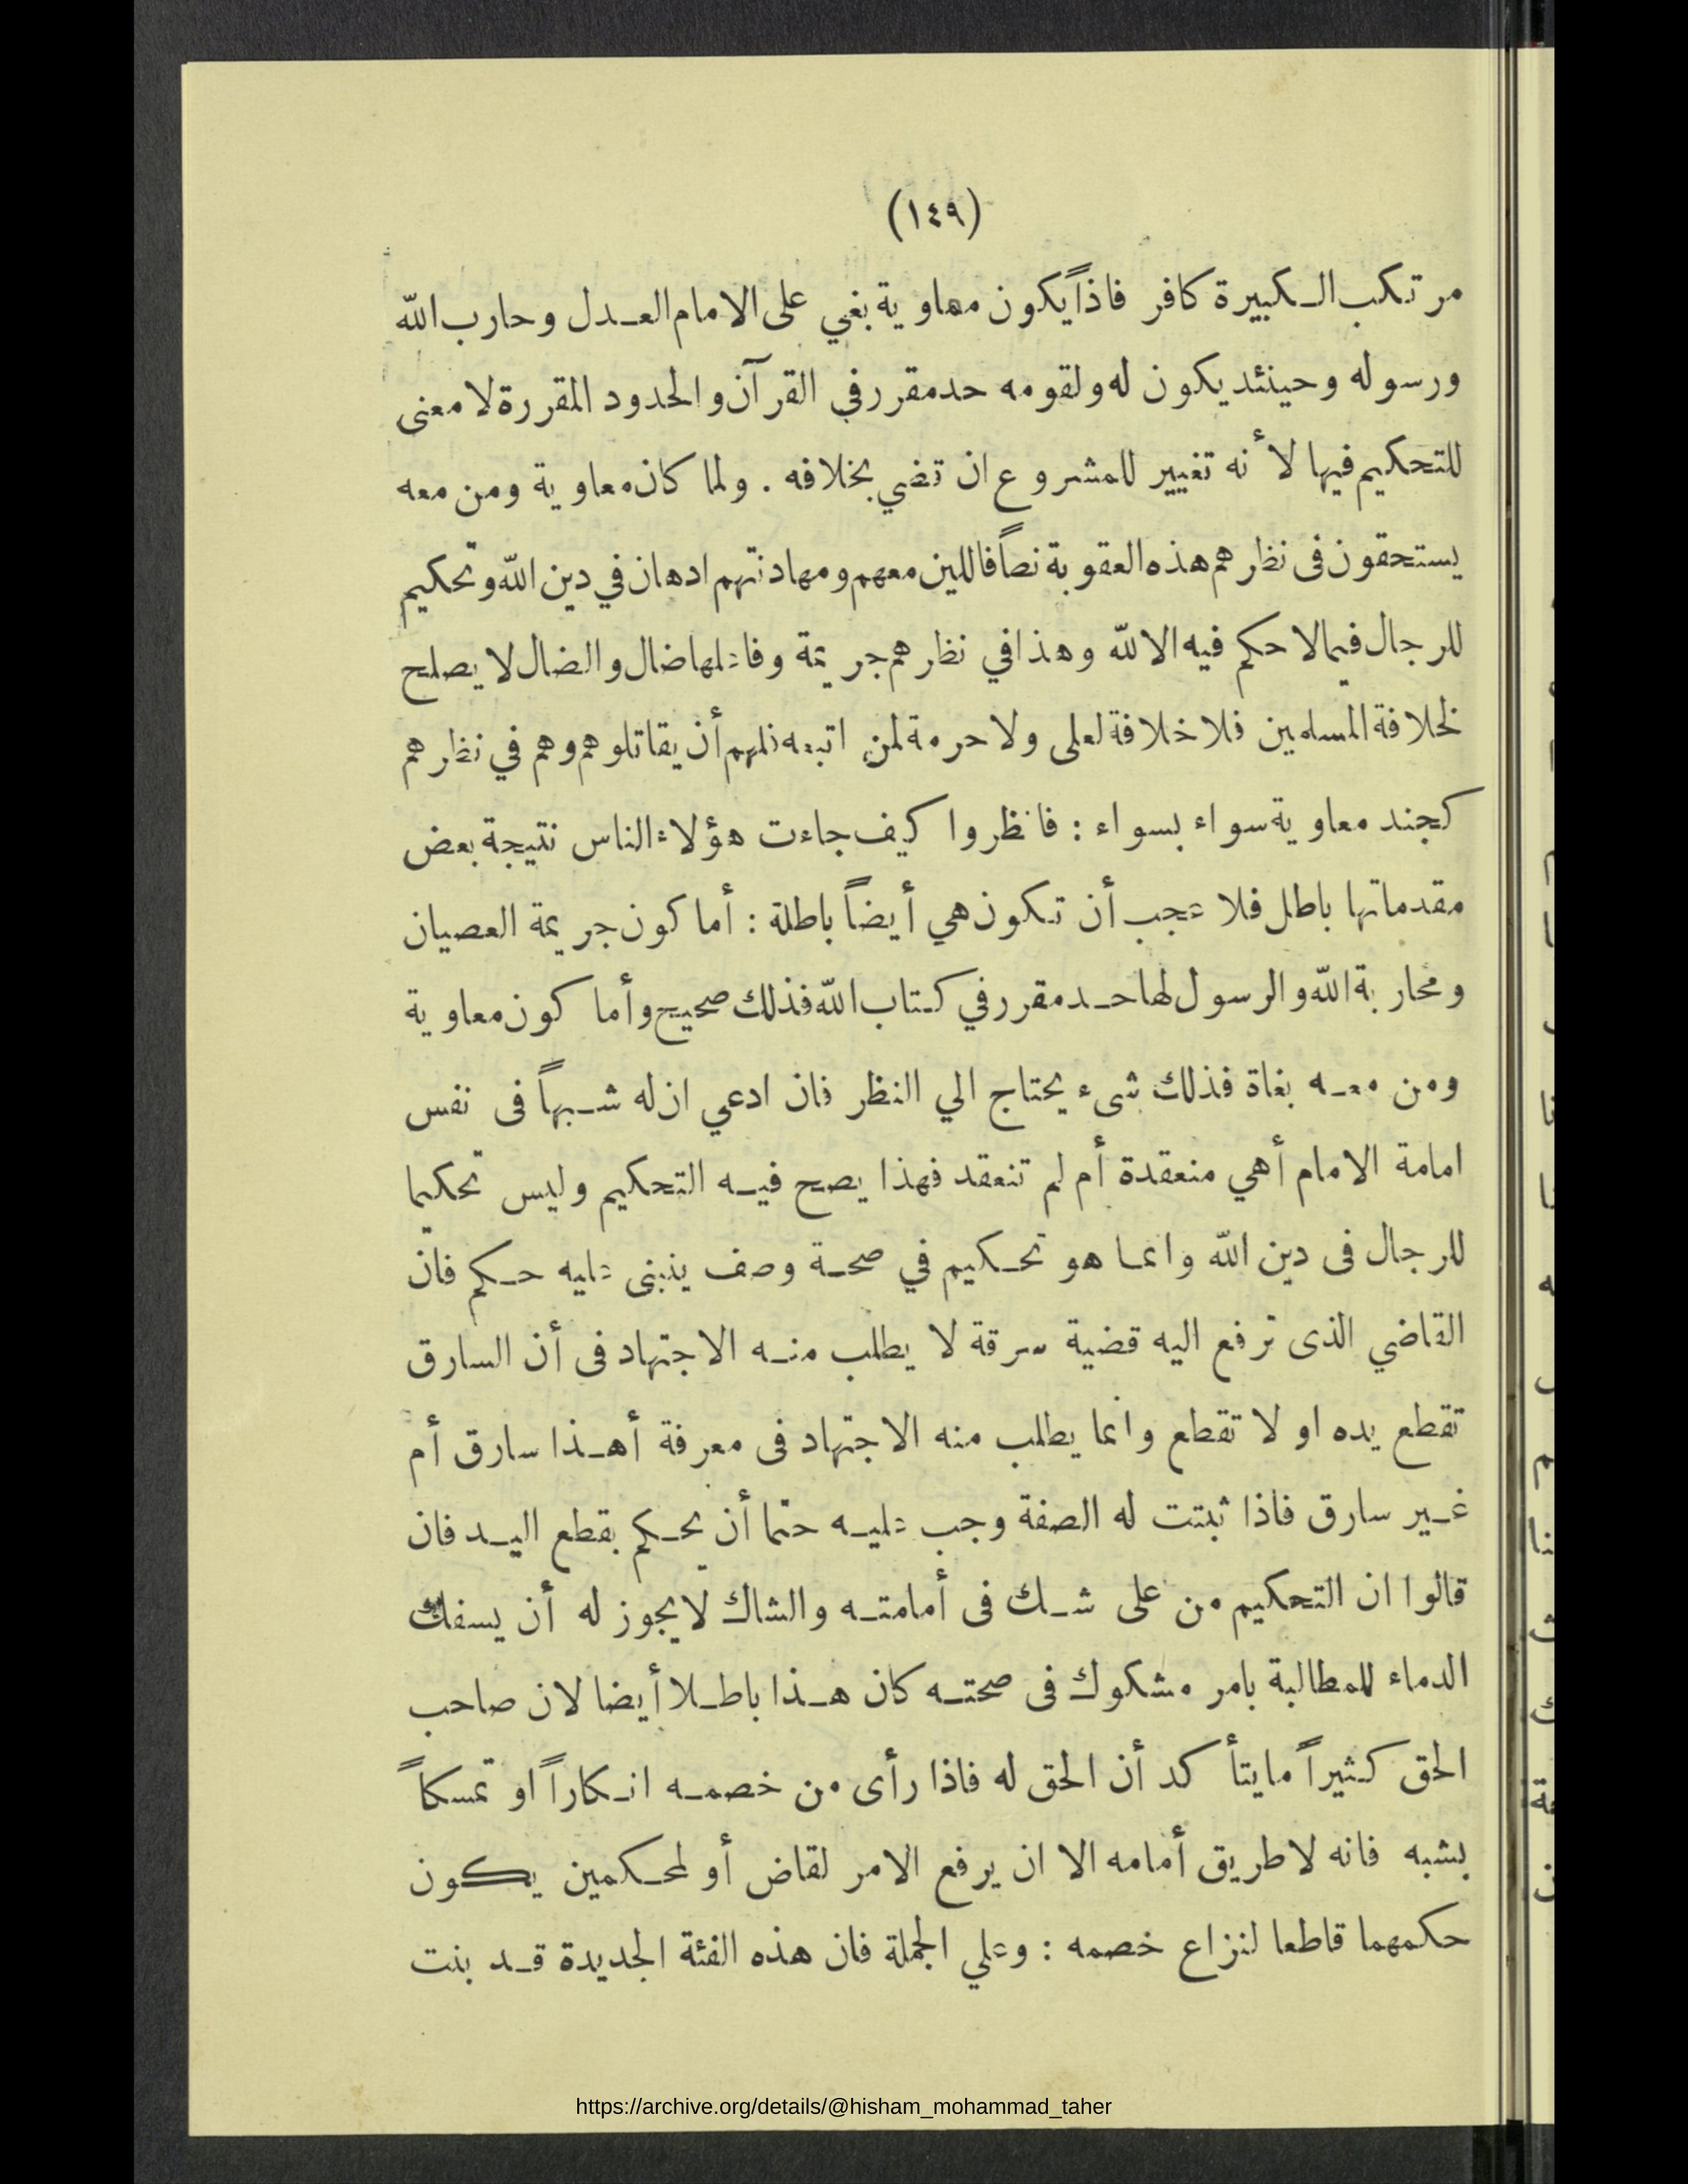 (١٤٩)
مرتكب الكبيرة كافر فاذاً يكون معاوية بغي على الامام العدل وحارب الله
ورسوله وحينئذ يكون له ولقومه حد مقرر في القرآن والحدود المقررة لا معنى
للتحكيم فيها لأنه تغيير للمشروع ان تضي بخلافه . ولما كان معاوية ومن معه
يستحقون فى نظرهم هذه العقوبة نصاً فاللين معهم ومهادنتهم ادهان في دين الله وتحكيم
للرجال فيما لا حكم فيه الا لله وهذا في نظرهم جريمة وفاعلها ضال والضال لا يصلح
لخلافة المسلمين فلا خلافة لعلى ولا حرمة لمن اتبعه فلهم أن يقاتلوهم وهم في نظرهم
كجند معاوية سواء بسواء : فانظروا كيف جاءت هؤلاء الناس نتيجة بعض
مقدماتها باطل فلا عجب أن تكون هي أيضاً باطلة : أما كون جريمة العصيان
ومحاربة الله والرسول لها حد مقرر في كتاب الله فذلك صحيح وأما كون معاوية
ومن معه بغاة فذلك شىء يحتاج الي النظر فان ادعي ان له شبهاً فى نفس
امامة الامام أهي منعقدة أم لم تنعقد فهذا يصح فيه التحكيم وليس تحكيما
للرجال فى دين الله وانما هو تحكيم في صحة وصف ينبنى عليه حكم فان
القاضي الذى ترفع اليه قضية سرقة لا يطلب منه الاجتهاد فى أن السارق
تقطع يده او لا تقطع وانما يطلب منه الاجتهاد فى معرفة أهذا سارق أم
غير سارق فاذا ثبتت له الصفة وجب عليه حتما أن يحكم بقطع اليد فان
قالوا ان التحكيم من على شك فى أمامته والشاك لا يجوز له أن يسفك
الدماء للمطالبة بامر مشكوك فى صحته كان هذا باطلا أيضا لان صاحب
الحق كثيراً ما يتأكد أن الحق له فاذا رأى من خصمه انكاراً او تمسكاً
بشبه فانه لا طريق أمامه الا ان يرفع الامر لقاض أو لمحكمين يكون
حكمهما قاطعا لنزاع خصمه : وعلي الجملة فان هذه الفئة الجديدة قد بنت
https://archive.org/details/@hisham_mohammad_taher